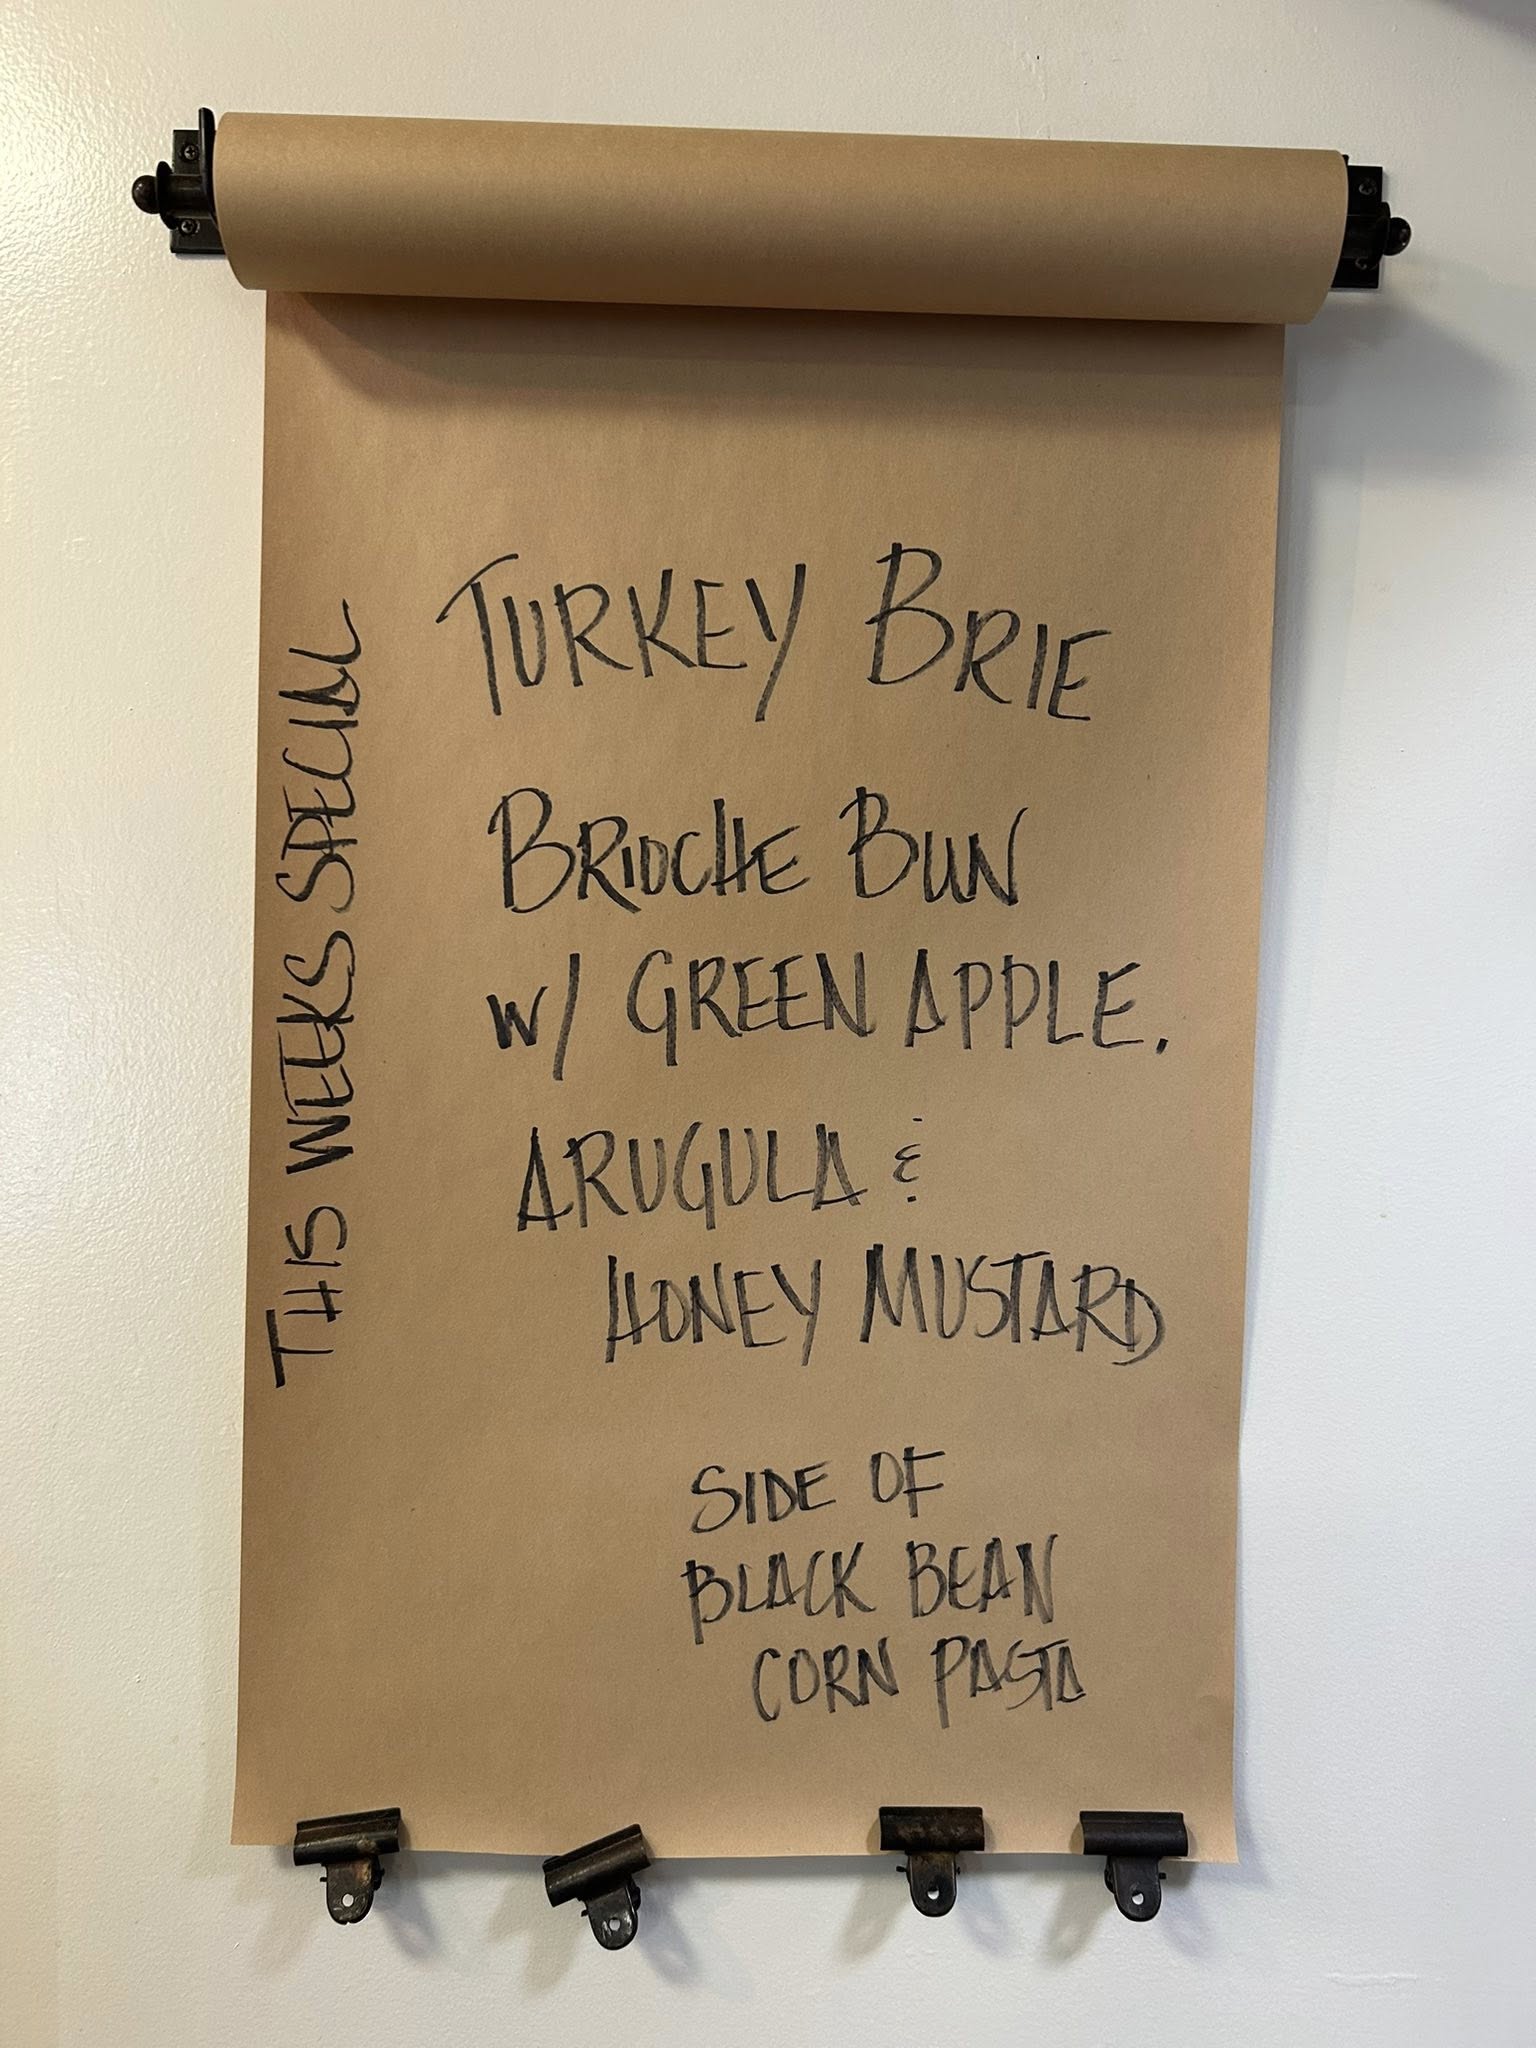 THIS WEEKS SPECIAL
TURKEY BRIE
BRIOCHE BUN
W/ GREEN APPLE,
ARUGULA &
HONEY MUSTARD
SIDE OF
BLACK BEAN
CORN PASTA